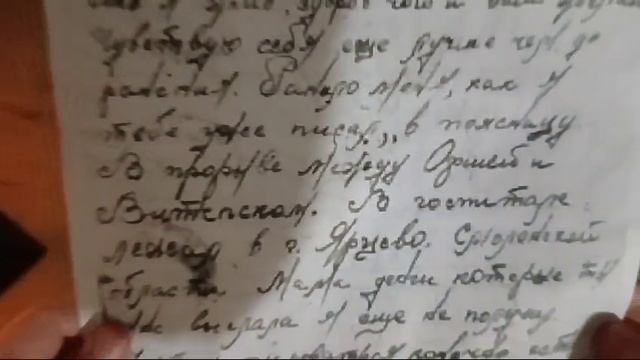 я жив, здоров чего и вам
чувствую себя еще лучше чем до
ранения. Ранило меня, как я
тебе уже писал, в поясницу
В прорыве между Оршей и
Витебском. В госпитале
лежал в г. Ярцево. Смоленской
области. Мама деньги которые ты
мне выслала я еще не получил